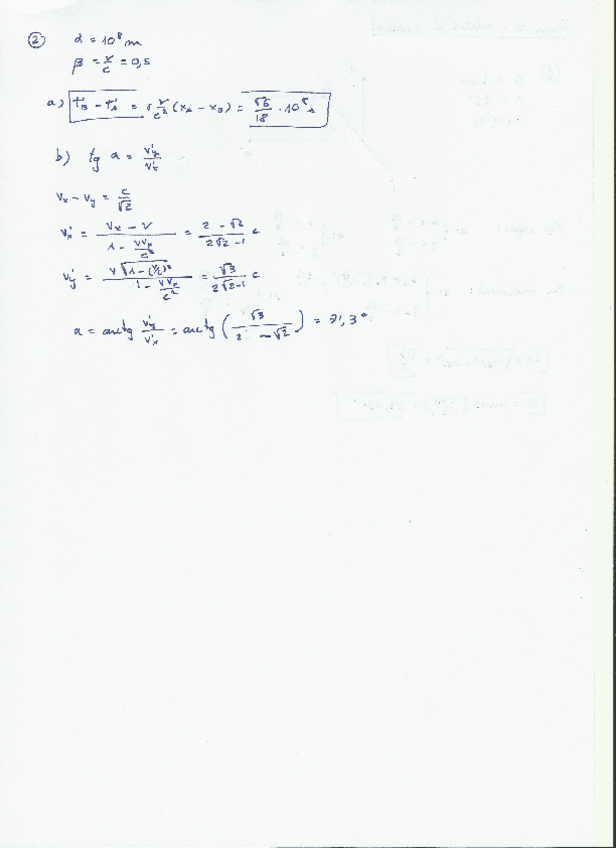 ② d = 10⁸ m
β = v/c = 0,5
a) t'_B - t'_A = γ v/c² (x_A - x_B) = √6/18 · 10⁸ s
b) tg α = v'_y/v'_x
v_x - v_y = c/√2
v'_x = (v_x - v)/(1 - v v_x/c²) = (2 - √2)/(2√2 - 1) c
v'_y = (v √(1 - (v/c)²))/(1 - v v_x/c²) = √3/(2√2 - 1) c
α = arctg v'_y/v'_x = arctg (√3/(2 - √2)) = 71,3°